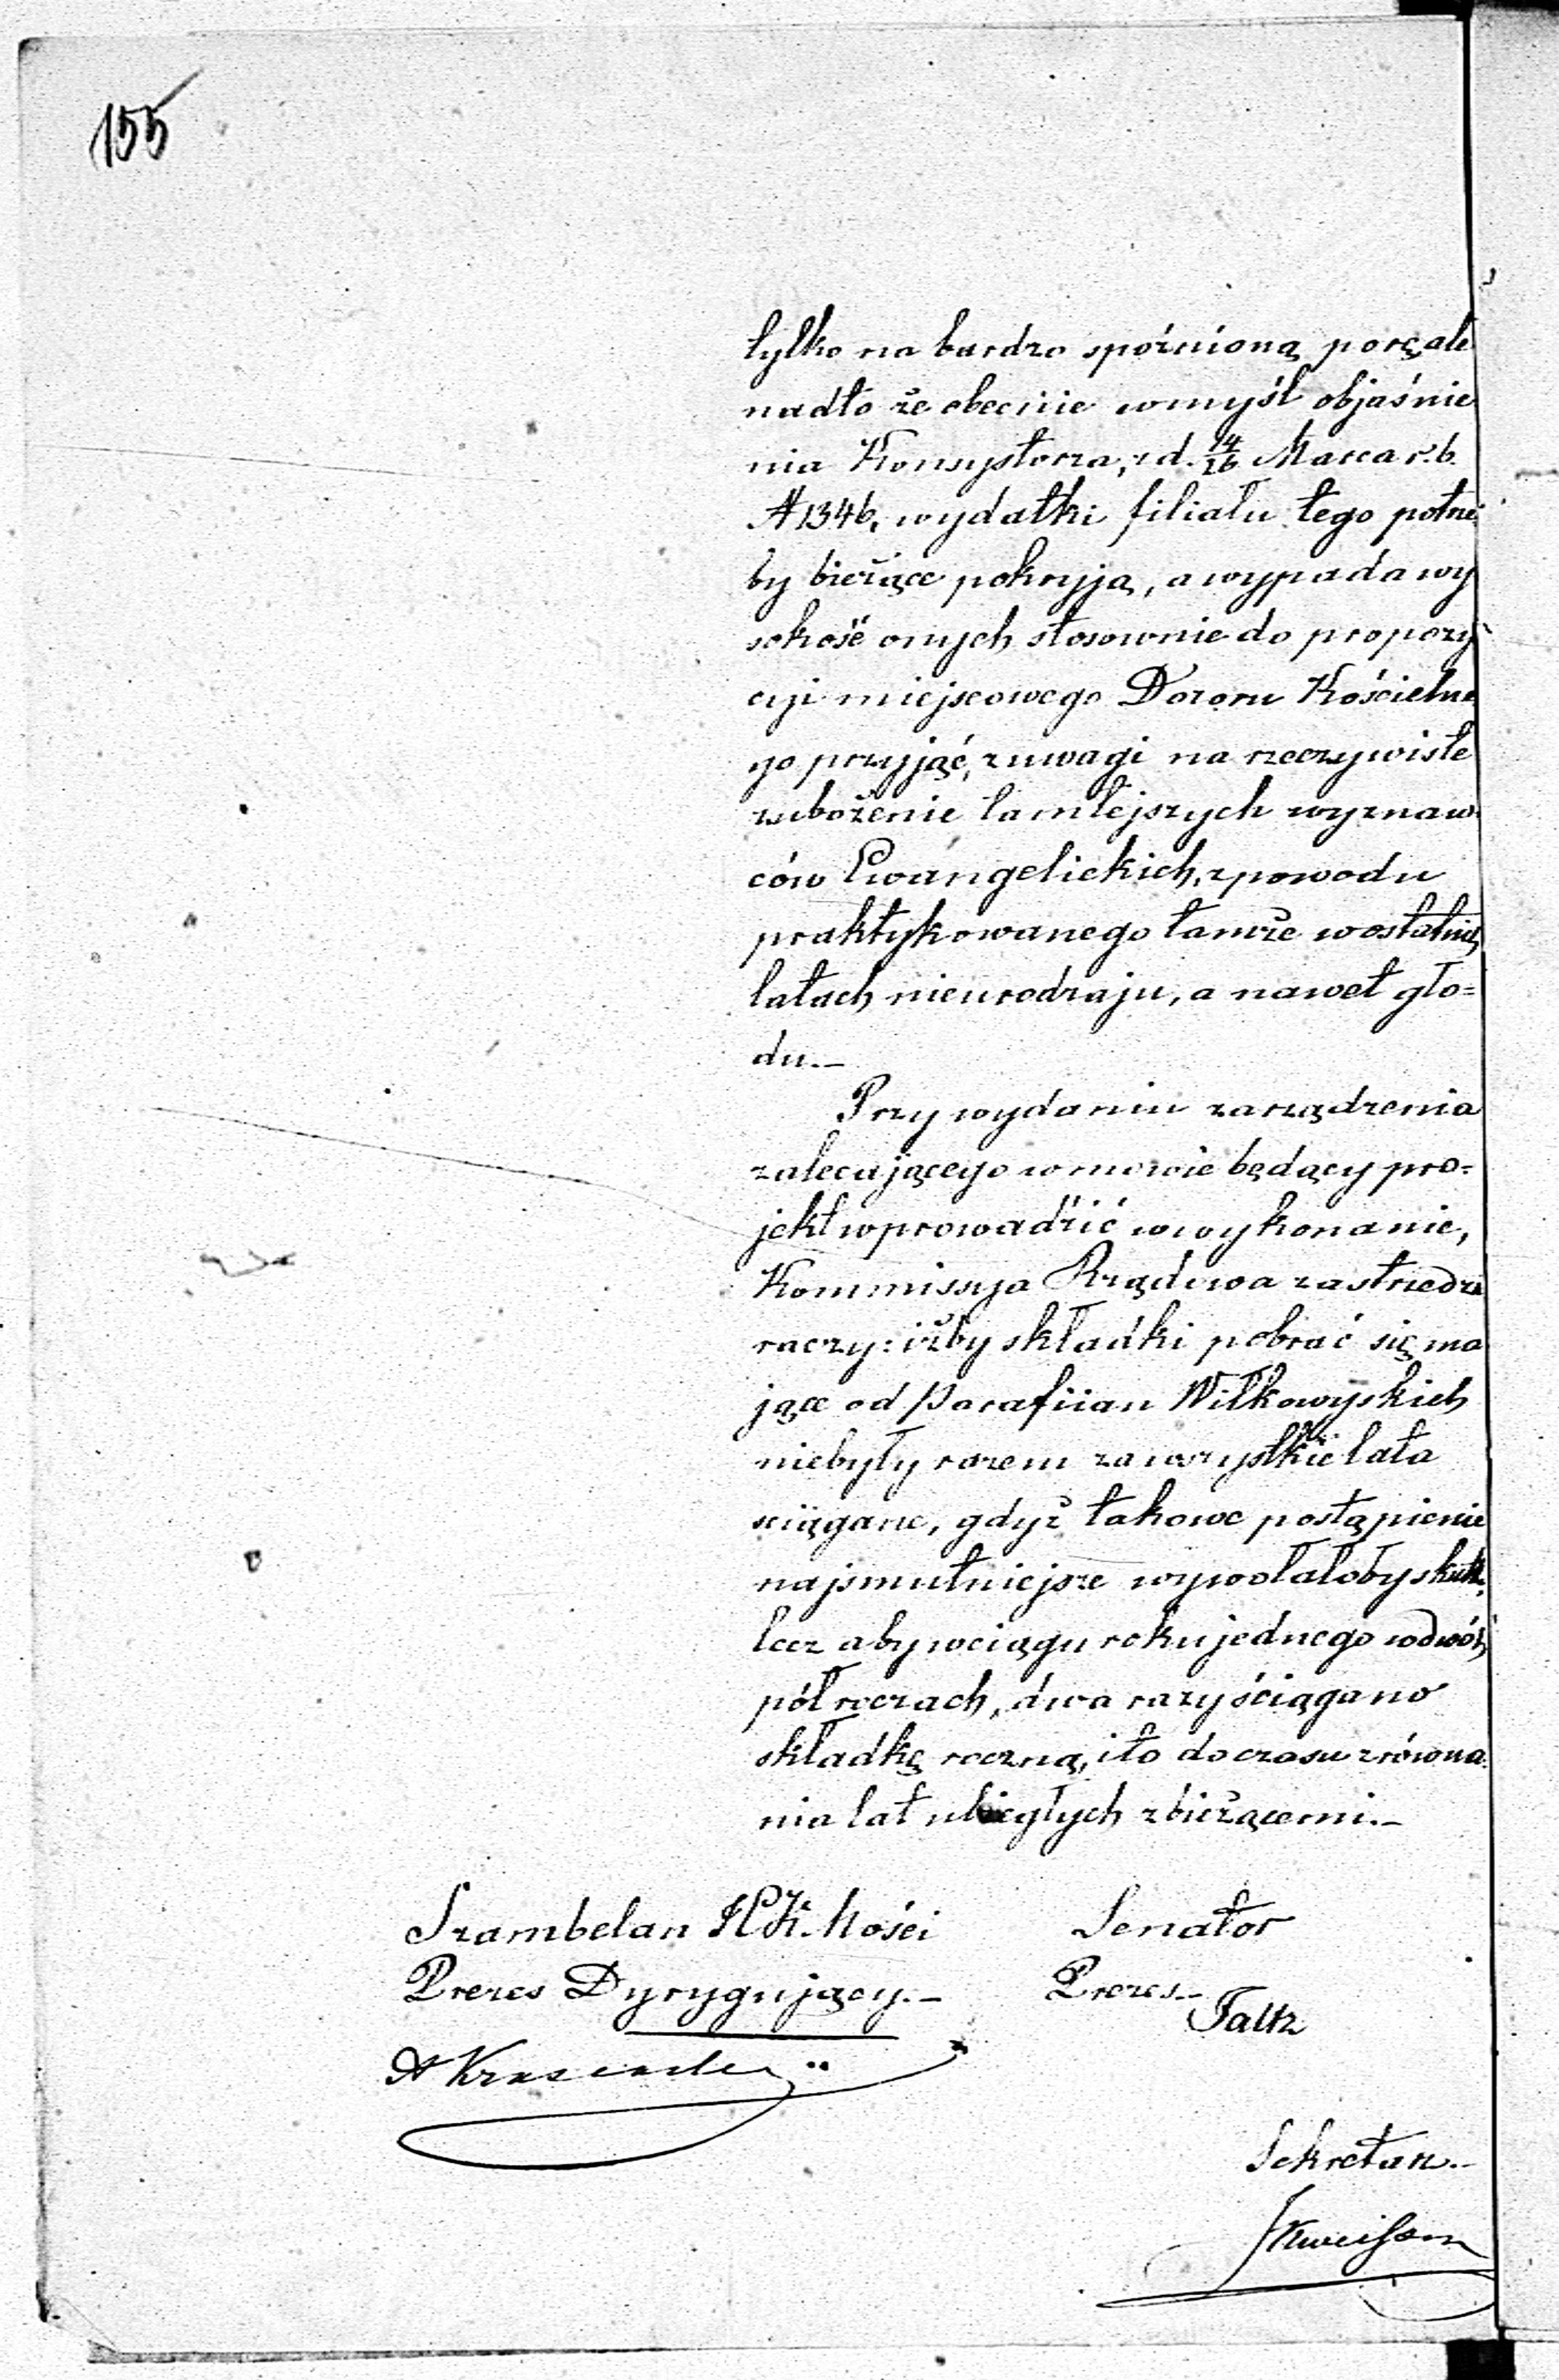 155
tylko na bardzo spóźnioną porę, ale
nadto że obecnie w myśl objaśnie
nia Konsystorza, z d. 14/26 Marca r. b.
N 1346, wydatki filiału tego potrze
by bieżące pokryją, a wypada wy
sokość onych stosownie do propozy
cyi miejscowego Dozoru Kościelne
go przyjąć, z uwagi na rzeczywiste
zubożenie tamtejszych wyznaw
ców Ewangelickich, z powodu
praktykowanego tamże w ostatnich
latach nieurodzaju, a nawet gło=
du.–
Przy wydaniu zarządzenia
zalecającego w mowie będący pro=
jekt wprowadzić w wykonanie,
Kommissya Rządowa zastrzedz
raczy: iżby składki pobrać się ma
jące od Parafiian Wiłkowyskich
niebyły razem za wszystkie lata
sciągane, gdyż takowe postąpienie
najsmutniejsze wywołałoby skutki,
lecz aby w ciągu roku jednego w dwóch
półroczach, dwa razy ściągano
składkę roczną, i to do czasu zrówna
nia lat ubiegłych z bieżącemi.–
Szambelan J.C.K. Mości
Prezes Dyrygujący.–
Senator
Prezes–
Faltz
Sekretarz.–